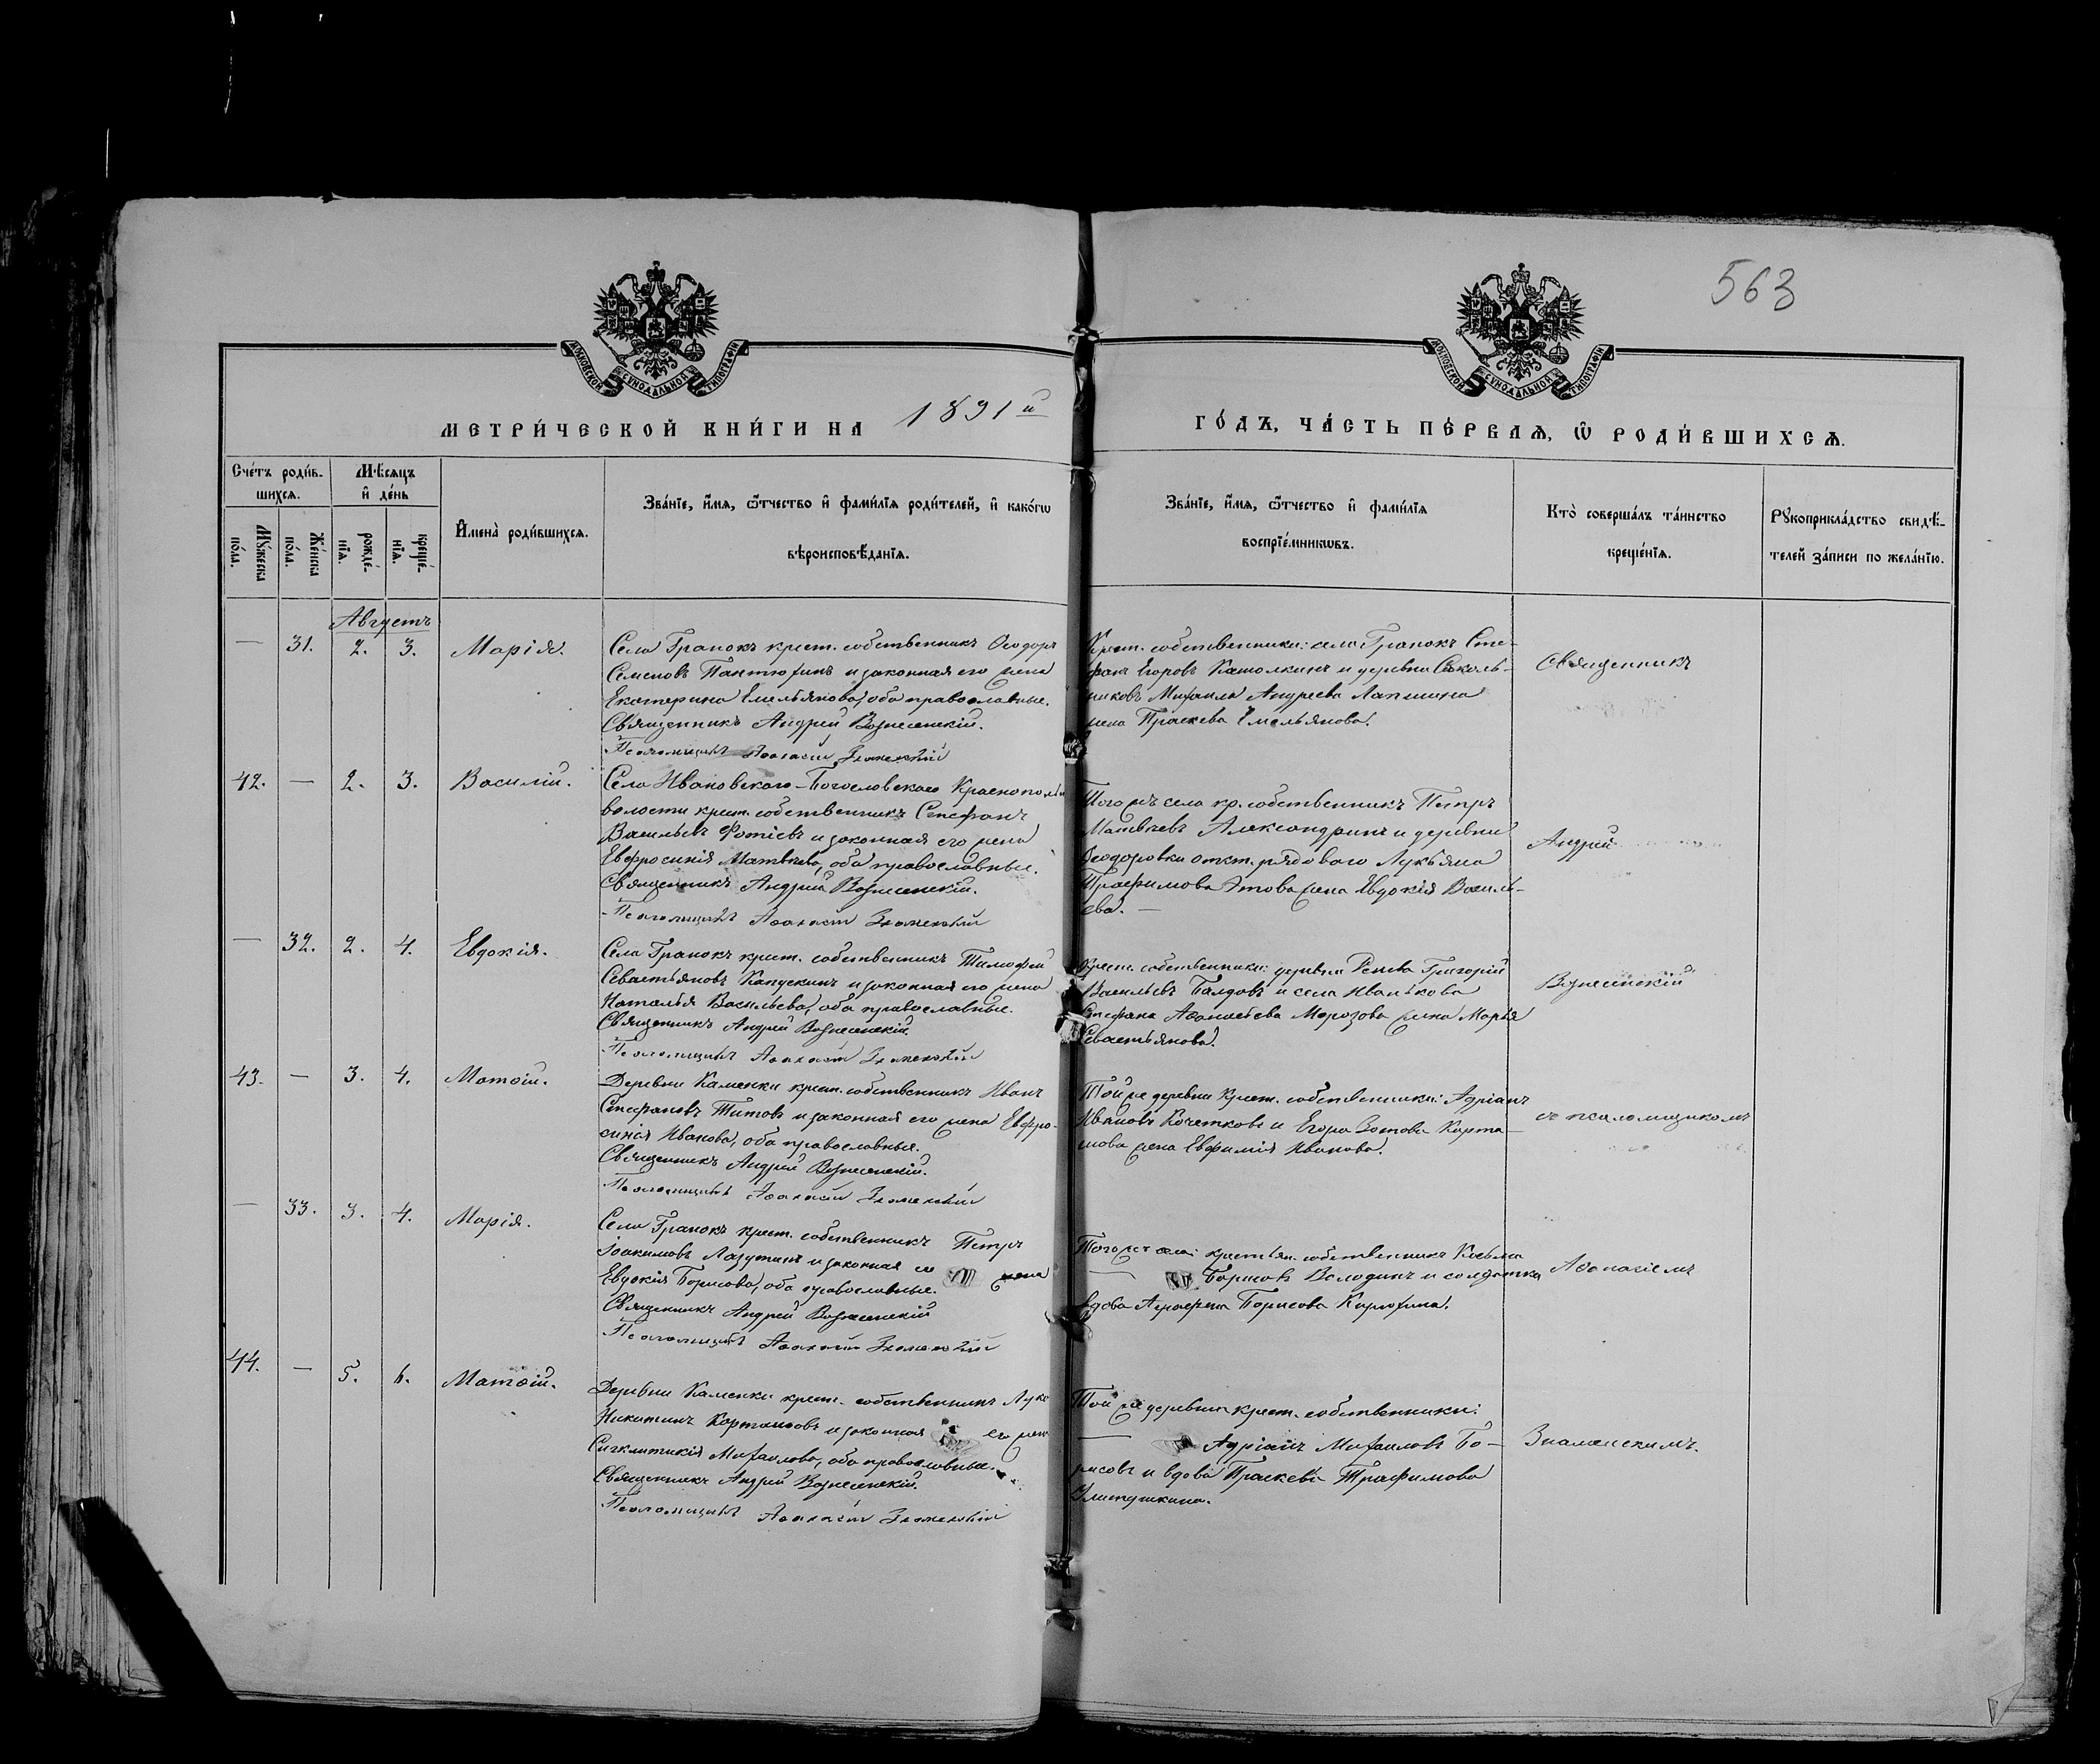 563
МОСКОВСКОЙ СУНОДАЛЬНОЙ ТИПОГРАФІИ
МОСКОВСКОЙ СУНОДАЛЬНОЙ ТИПОГРАФІИ
МЕТРИ́ЧЕСКОЙ КНИ́ГИ НА 1891й
ГО́ДЪ, ЧА́СТЬ ПЕ́РВАѦ, Ѡ҆ РОДИ́ВШИХСѦ.
Сче́тъ роди́в-
шихсѧ.
Мѣ́сяцъ
и҆ де́нь
Мꙋ́жеска
по́ла.
Же́нска
по́ла.
рожде́-
нїѧ.
креще́-
нїѧ.
И҆мена̀ роди́вшихсѧ.
Зва́нїе, и҆́мѧ, ѻ҆́тчество и҆ фамѝлїѧ роди́телей, и҆ како́гѡ
вѣроисповѣ́данїѧ.
Зва́нїе, и҆́мѧ, ѻ҆́тчество и҆ фами́лїѧ
воспрїе́мникѡвъ.
Кто̀ соверша́лъ та́инство
креще́нїѧ.
Рꙋкоприкла́дство свидѣ́-
телей за́писи по жела́нїю.
Августъ
— 31. 2. 3. Марія.
Села Гранокъ крест. собственникъ Ѳеодоръ
Семеновъ Пантюхинъ и законная его жена
Екатерина Емельянова, оба православные.
Священникъ Андрей Вознесенскій.
Псаломщикъ Аѳанасій Знаменскій
Крест. собственники: села Гранокъ Сте-
фанъ Егоровъ Камолкинъ и деревни Соколь-
никовъ Михаила Андреева Лапшина
жена Праскева Емельянова.
Священникъ
42. — 2. 3. Василій.
Села Ивановскаго-Богословскаго Краснополь
волости крест. собственникъ Стефанъ
Васильевъ Фотіевъ и законная его жена
Евфросинія Матвѣева, оба православные.
Священникъ Андрей Вознесенскій.
Псаломщикъ Аѳанасій Знаменскій
Тогожъ села кр. собственникъ Петръ
Матвѣевъ Александринъ и деревни
Ѳеодоровки отст. рядового Лукьяна
Трафимова жена Евдокія Василь-
ева. —
Андрей
— 32. 2. 4. Евдокія.
Села Гранокъ крест. собственникъ Тимофей
Севастьяновъ Капускинъ и законная его жена
Наталья Васильева, оба православные.
Священникъ Андрей Вознесенскій.
Псаломщикъ Аѳанасій Знаменскій
Крест. собственники: деревни Григорій
Васильевъ Балдовъ и села Иванькова
Стефана Аѳанасьева Морозова жена Марья
Севастьянова.
Вознесенскій
43. — 3. 4. Матѳій.
Деревни Каменки крест. собственникъ Иванъ
Стефановъ Титовъ и законная его жена Евфро-
синія Иванова, оба православные.
Священникъ Андрей Вознесенскій.
Псаломщикъ Аѳанасій Знаменскій
Той же деревни крест. собственники: Адріанъ
Ивановъ Кочетковъ и Егора Зотова Карта-
шова жена Евфимія Иванова.
съ псаломщикомъ
— 33. 3. 4. Марія.
Села Гранокъ крест. собственникъ Петръ
Іоакимовъ Лазутинъ и законная его жена
Евдокія Борисова, оба православные.
Священникъ Андрей Вознесенскій
Псаломщикъ Аѳанасій Знаменскій
Тогожъ села: крестьян. собственникъ Косьма
— Борисовъ Володинъ и солдатка
вдова Аграфена Борисова Карюхина.
Аѳанасіемъ
44. — 5. 6. Матѳій.
Деревни Каменки крест. собственникъ Лука
Никитинъ Карташовъ и законная его жена
Синклитикія Михаилова, оба православные.
Священникъ Андрей Вознесенскій.
Псаломщикъ Аѳанасій Знаменскій
Той же деревни крест. собственники:
— Адріанъ Михаиловъ Бо-
рисовъ и вдова Праскева Трафимова
Улитушкина.
Знаменскимъ.